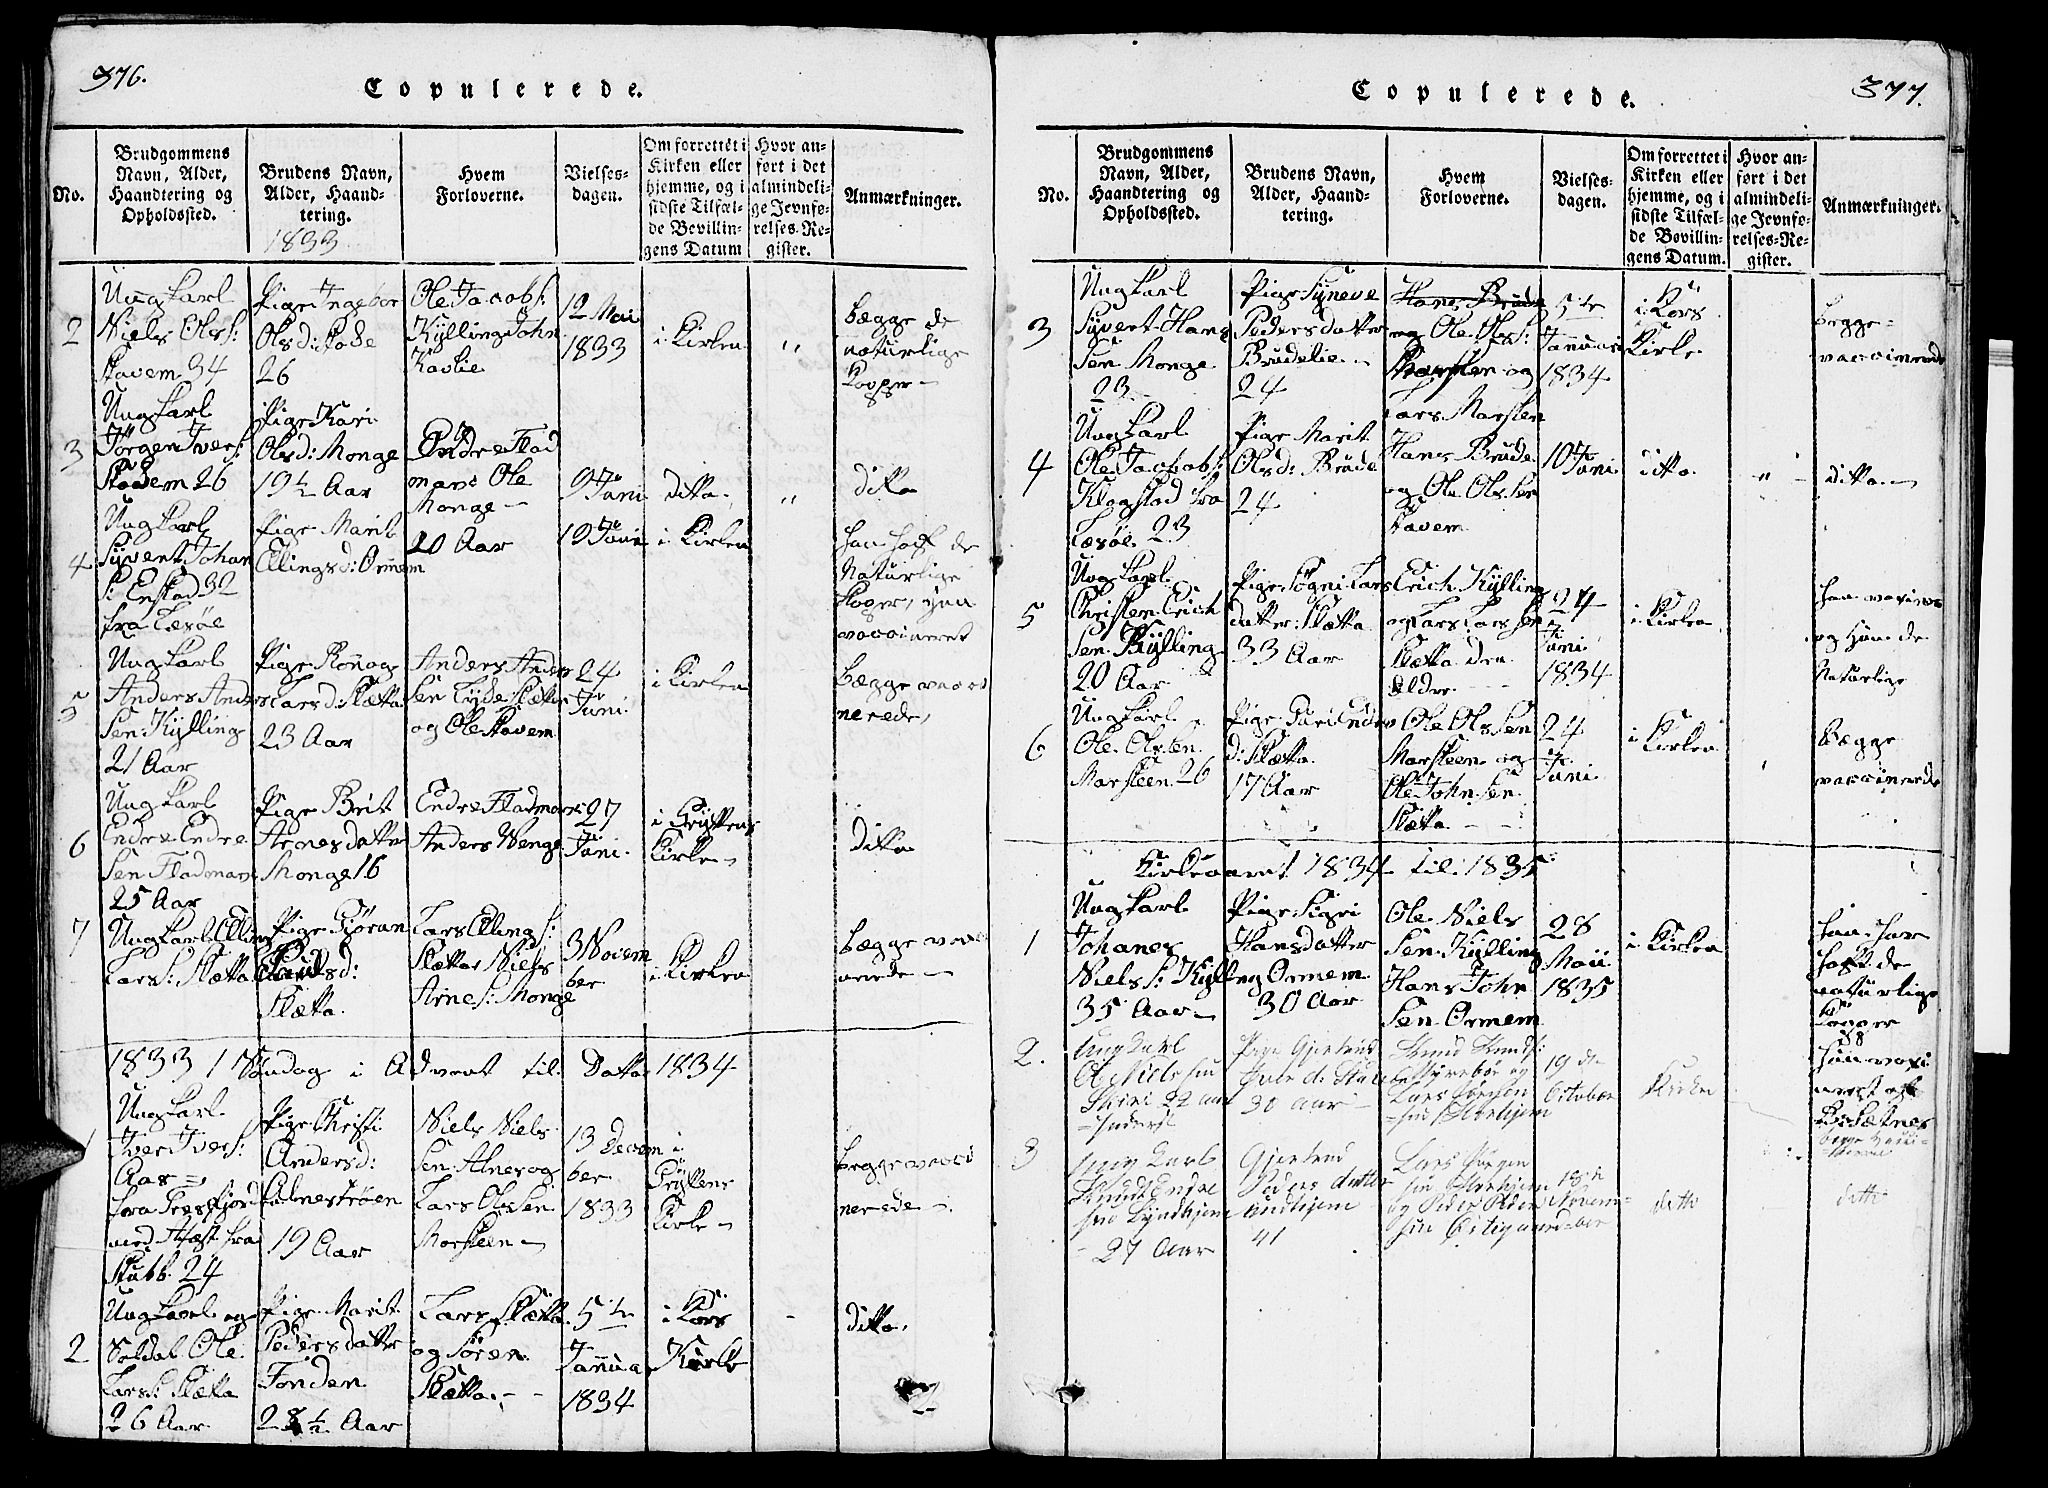 376.
Copulerede.
No.
Brudgommens
Navn, Alder,
Haandtering og
Opholdssted.
Brudens Navn,
Alder, Haand-
tering.
1833
Hvem
Forloverne.
Vielses-
dagen.
Om forrettet i
Kirken eller
hjemme, og i
sidste Tilfæl-
de Bevillin-
gens Datum
Hvor an-
ført i det
almindeli-
ge Jevnfø-
relses-Re-
gister.
Anmærkninger.
2
Ungkarl
Niels Ols:
Stavem 34
Pige Ingebor
Olsd:
26
Ole Jacobs:
Kylling John
Kavlie
12 Mai
1833
i Kirken
"
bægge de
naturlige
Kopper
3
Ungkarl
Jörgen Ivers:
26
Pige Kari
Olsd: Monge
19½ Aar
Endre Flad
mark Ole
Monge
9 Juni
ditto
"
ditto
4
Ungkarl
Syvert Johan
S: Enstad 32
fra Lesöe
Pige Marit
Ellingsd: Ormem
20 Aar
19 Juni
i Kirken
han haft de
Naturlige
Koper, hun
vaccineret
5
Ungkarl
Anders Anders
Sen Kylling
21 Aar
Pige Rönnog
Larsd: Slætta
23 Aar
Anders Anders
Sen
og Ole Stavem
24
Juni
i Kirken
Bægge vacci
nerede,
6
Ungkarl
Endre Endre
Sen Fladmark
25 Aar
Pige Brit
Arnesdatter
Monge 16
Endre Fladmark
Anders Wenge
27
Juni
i Gryttens
Kirke
Ditto
7
Ungkarl Elling
Lars: Slætta
Pige Gjöran
Slætta
Lars Ellings:
Slætta Niels
Arnes: Monge
3 Novem
ber
i Kirken
bægge vacci
nerede
1833 1 Söndag i Advent til Dato 1834
1
Ungkarl
Iver Ivers:
Aas
med Attest fra
24
Pige Christi
Andersd:
Alnestrøen
19 Aar
Niels Niels
Sen Alnes og
Lars Olsen
Marsteen
13 Decem
ber
1833
i
Gryttens
Kirke
begge vacci
nerede
2
Ungkarl og
Soldat Ole
Lars: Slætta
26 Aar
Pige Marit
Pedersdatter
28½ Aar
Lars Slætta
og Sören
Slætta
5te
Janua
1834
i Kors
Kirke
ditto.
377.
Copulerede.
No.
Brudgommens
Navn, Alder,
Haandtering og
Opholdssted.
Brudens Navn,
Alder, Haand-
tering.
Hvem
Forloverne.
Vielses-
dagen.
Om forrettet i
Kirken eller
hjemme, og i
sidste Tilfæl-
de Bevillin-
gens Datum.
Hvor an-
ført i det
almindeli-
ge Jevnfø-
relses-Re-
gister.
Anmærkninger.
3
Ungkarl
Syvert Hans
Sen Monge
23
Pige Syneve
Pedersdatter
Brudelie
24
Hans Brude
og Ole Ols:
Marsteen og
Lars Marsten
5te
Januari
1834
i Kors
Kirke
begge
vaccinerede
4
Ungkarl
Ole Jacobs:
Klogstad fra
Lesöe 23
Pige Marit
Olsd: Brude
24
Hans Brude
og Ole Olssen
Stavem
10 Juni
ditto
"
ditto
5
Ungkarl
Christen Erich
Sen Kylling
20 Aar
Pige Sögni Lars
datter: Slætta
33 Aar
Erich Kylling
og Lars Lars Sen
Slætta den
Eldre
24
Juni
1834
i Kirken
han
og Hun de
Naturlige
6
Ungkarl
Ole Olsen
Marsteen 26
Pige Guri Enders
d: Slætta
17 Aar
Ole Ols Sen
Marsteen og
Ole John Sen
Slætta
24
Juni
i Kirken
Bægge
vaccinerede
Kirkeaaret 1834 til 1835
1
Ungkarl
Johanes
Niels S: Kylling
35 Aar
Pige Sigri
Hansdatter
Ormem
30 Aar
Ole Niels
Sen Kylling
Hans John
Sen Ormem
28
Maii
1835
i Kirken
han har
haft de
naturlige
Kopper
hun vaxi
neret af
2.
Ungkarl
Ole Nielssen
Pige Gjertrud
30 aar
Knud Knuds:
og
Lars Jörgen
19 de
October
Kirken
begge
3
Ungkarl
Knud Endre
sen
27 Aar
Gjertrud
Peders datter
41
Lars Jörgen
sen
og Peder Peder
sen
18de
Novem
ber
ditto
ditto